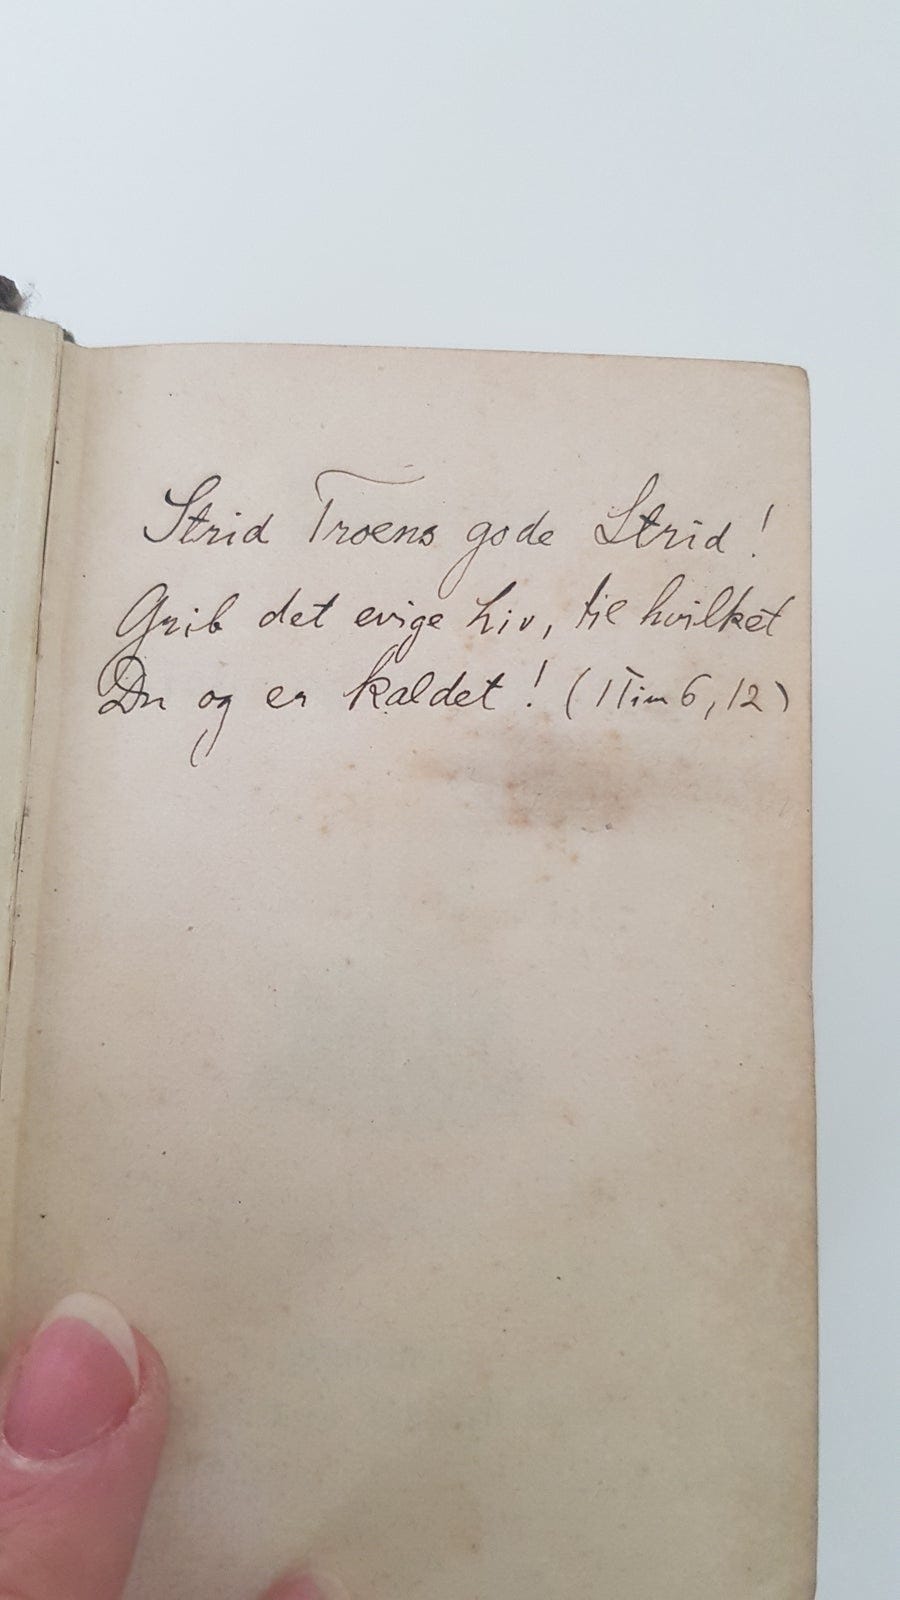 Strid Troens gode Strid!
Grib det evige Liv, til hvilket
Du og er kaldet! (1 Tim 6, 12)